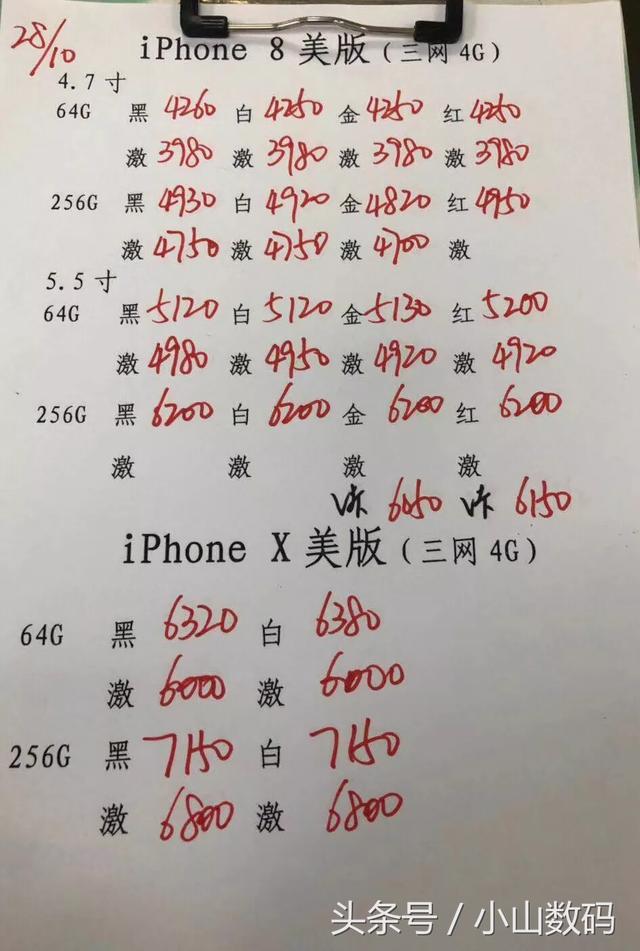 28/10
iPhone 8 美版(三网4G)
4.7寸
64G 黑 4260 白 4250 金 4250 红 4250
激 3980 激 3980 激 3980 激 3980
256G 黑 4930 白 4920 金 4820 红 4950
激 4750 激 4750 激 4700 激
5.5寸
64G 黑 5120 白 5120 金 5130 红 5200
激 4980 激 4950 激 4920 激 4920
256G 黑 6200 白 6200 金 6200 红 6200
激 激 激 激
6050 6150
iPhone X 美版(三网4G)
64G 黑 6320 白 6380
激 6000 激 6000
256G 黑 7150 白 7150
激 6800 激 6800
头条号 / 小山数码